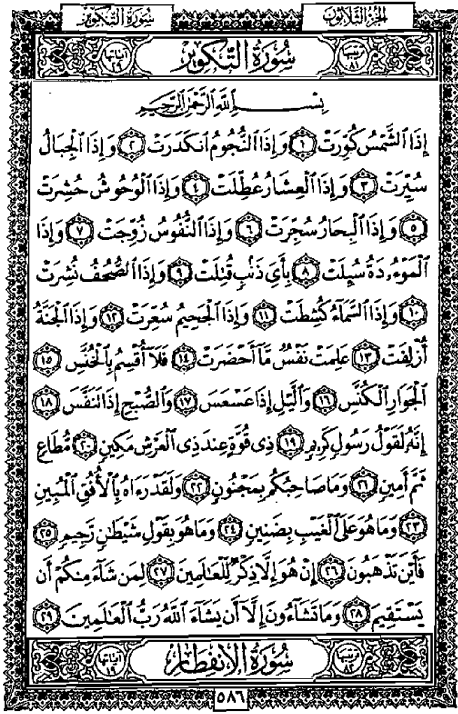 سُورَةُ التَّكْوِيرِ الجُزْءُ الثَّلَاثُونَ
آيَاتُهَا ٢٩ سُورَةُ التَّكْوِيرِ ترتيبها ٨١
بِسْمِ اللَّهِ الرَّحْمَٰنِ الرَّحِيمِ
إِذَا الشَّمْسُ كُوِّرَتْ ١ وَإِذَا النُّجُومُ انكَدَرَتْ ٢ وَإِذَا الْجِبَالُ
سُيِّرَتْ ٣ وَإِذَا الْعِشَارُ عُطِّلَتْ ٤ وَإِذَا الْوُحُوشُ حُشِرَتْ
٥ وَإِذَا الْبِحَارُ سُجِّرَتْ ٦ وَإِذَا النُّفُوسُ زُوِّجَتْ ٧ وَإِذَا
الْمَوْءُۥدَةُ سُئِلَتْ ٨ بِأَيِّ ذَنۢبٍ قُتِلَتْ ٩ وَإِذَا الصُّحُفُ نُشِرَتْ
١٠ وَإِذَا السَّمَآءُ كُشِطَتْ ١١ وَإِذَا الْجَحِيمُ سُعِّرَتْ ١٢ وَإِذَا الْجَنَّةُ
أُزْلِفَتْ ١٣ عَلِمَتْ نَفْسٌ مَّآ أَحْضَرَتْ ١٤ فَلَآ أُقْسِمُ بِالْخُنَّسِ ١٥
الْجَوَارِ الْكُنَّسِ ١٦ وَالَّيْلِ إِذَا عَسْعَسَ ١٧ وَالصُّبْحِ إِذَا تَنَفَّسَ ١٨
إِنَّهُۥ لَقَوْلُ رَسُولٍ كَرِيمٍ ١٩ ذِى قُوَّةٍ عِندَ ذِى الْعَرْشِ مَكِينٍ ٢٠ مُّطَاعٍ
ثَمَّ أَمِينٍ ٢١ وَمَا صَاحِبُكُم بِمَجْنُونٍ ٢٢ وَلَقَدْ رَءَاهُ بِالْأُفُقِ الْمُبِينِ
٢٣ وَمَا هُوَ عَلَى الْغَيْبِ بِضَنِينٍ ٢٤ وَمَا هُوَ بِقَوْلِ شَيْطَٰنٍ رَّجِيمٍ ٢٥
فَأَيْنَ تَذْهَبُونَ ٢٦ إِنْ هُوَ إِلَّا ذِكْرٌ لِّلْعَٰلَمِينَ ٢٧ لِمَن شَآءَ مِنكُمْ أَن
يَسْتَقِيمَ ٢٨ وَمَا تَشَآءُونَ إِلَّآ أَن يَشَآءَ اللَّهُ رَبُّ الْعَٰلَمِينَ ٢٩
آيَاتُهَا ١٩ سُورَةُ الِانفِطَارِ
٥٨٦